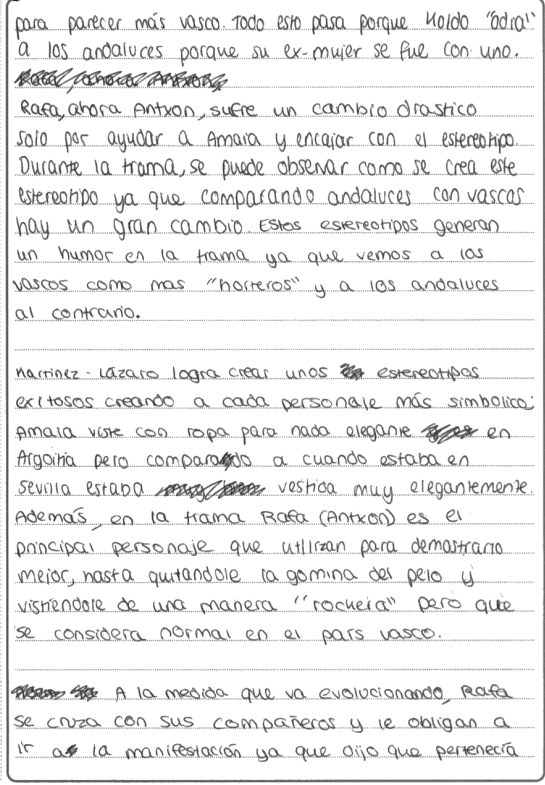 para parecer más vasco. Todo esto pasa porque Koldo "odia"
a los andaluces porque su ex-mujer se fue con uno.
Rafa, ahora Antxon, sufre un cambio drastico
solo por ayudar a Amaia y encajar con el estereotipo.
Durante la trama, se puede observar como se crea este
estereotipo ya que comparando andaluces con vascos
hay un gran cambio. Estos estereotipos generan
un humor en la trama ya que vemos a los
vascos como mas "horteros" y a los andaluces
al contrario.
Martinez-Lázaro logra crear unos estereotipos
exitosos creando a cada personaje más simbolico:
Amaia viste con ropa para nada elegante en
Argoitia pero comparando a cuando estaba en
Sevilla estaba vestida muy elegantemente.
Además, en la trama Rafa (Antxon) es el
principal personaje que utilizan para demostrarlo
mejor, hasta quitandole la gomina del pelo y
vistiendole de una manera "rockera" pero que
se considera normal en el pais vasco.
A la medida que va evolucionando, Rafa
se cruza con sus compañeros y le obligan a
ir a la manifestación ya que dijo que pertenecía